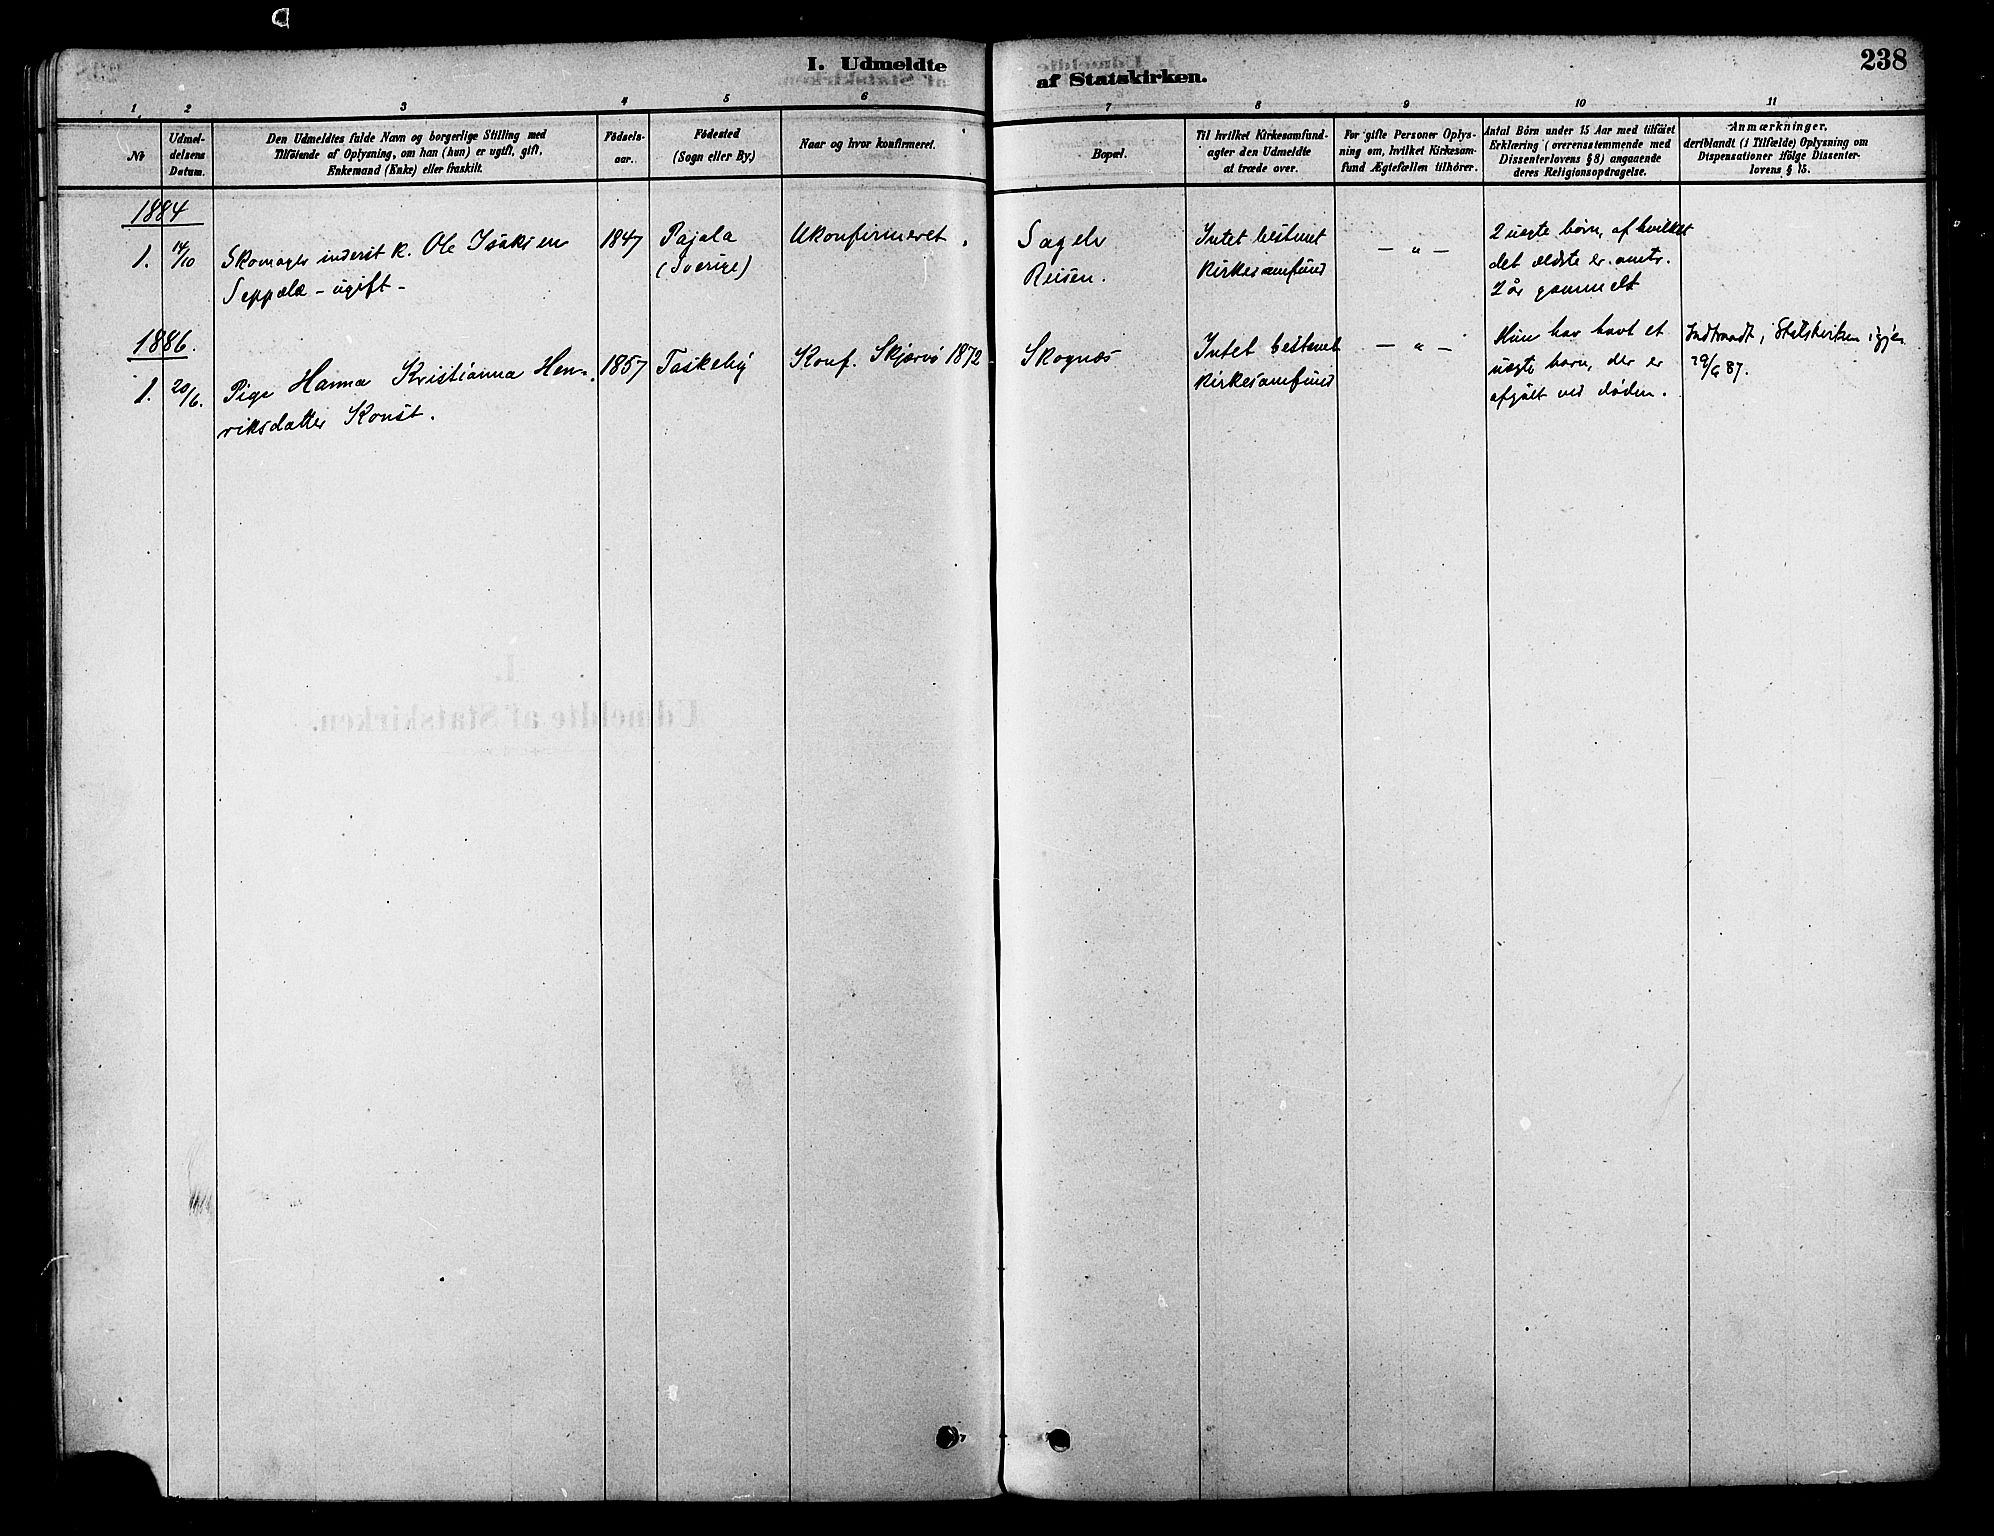 I. Udmeldte
af Statskirken.
238
1
2
3
4
5
6
7
8
9
10
11
No
Udmel-
delsens
Datum.
Den Udmeldtes fulde Navn og borgerlige Stilling med
Tilföiende af Oplysning, om han (hun) er ugift, gift,
Enkemand (Enke) eller fraskilt.
Födsels-
aar.
Födested
(Sogn eller By.)
Naar og hvor konfirmeret.
Bopæl.
Til hvilket Kirkesamfund-
agter den Udmeldte
at træde over.
For gifte Personer Oplys-
ning om, hvilket Kirkesam-
fund Ægtefællen tilhörer.
Antal Börn under 15 Aar med tilföiet
Erklæring (overensstemmende med
Dissenterlovens § 8) angaaende
deres Religionsopdragelse.
Anmærkninger,
deriblandt (i Tilfælde) Oplysning om
Dispensationer ifölge Dissenter-
lovens § 15.
1884
1.
14/10
Skomager inderst k. Ole Isaksen
Seppälä - ugift -
1847
Pajala
(Sverige)
Ukonfirmeret.
Sagelv
Reisen.
Intet bestemt
Kirkesamfund
— " —
2 uægte børn, af hvilket
det ældste er omtr.
2 år gammelt
1886.
1.
20/6.
Pige Hanna Kristianna Hen-
riksdatter Konst.
1857
Taskeby
Konf. Skjærvø 1872
Skognæs
Intet bestemt
Kirkesamfund
— " —
Hun har havt et
uægte barn, der er
afgået ved døden.
Indtraadt i Statskirken igjen
29/6 87.